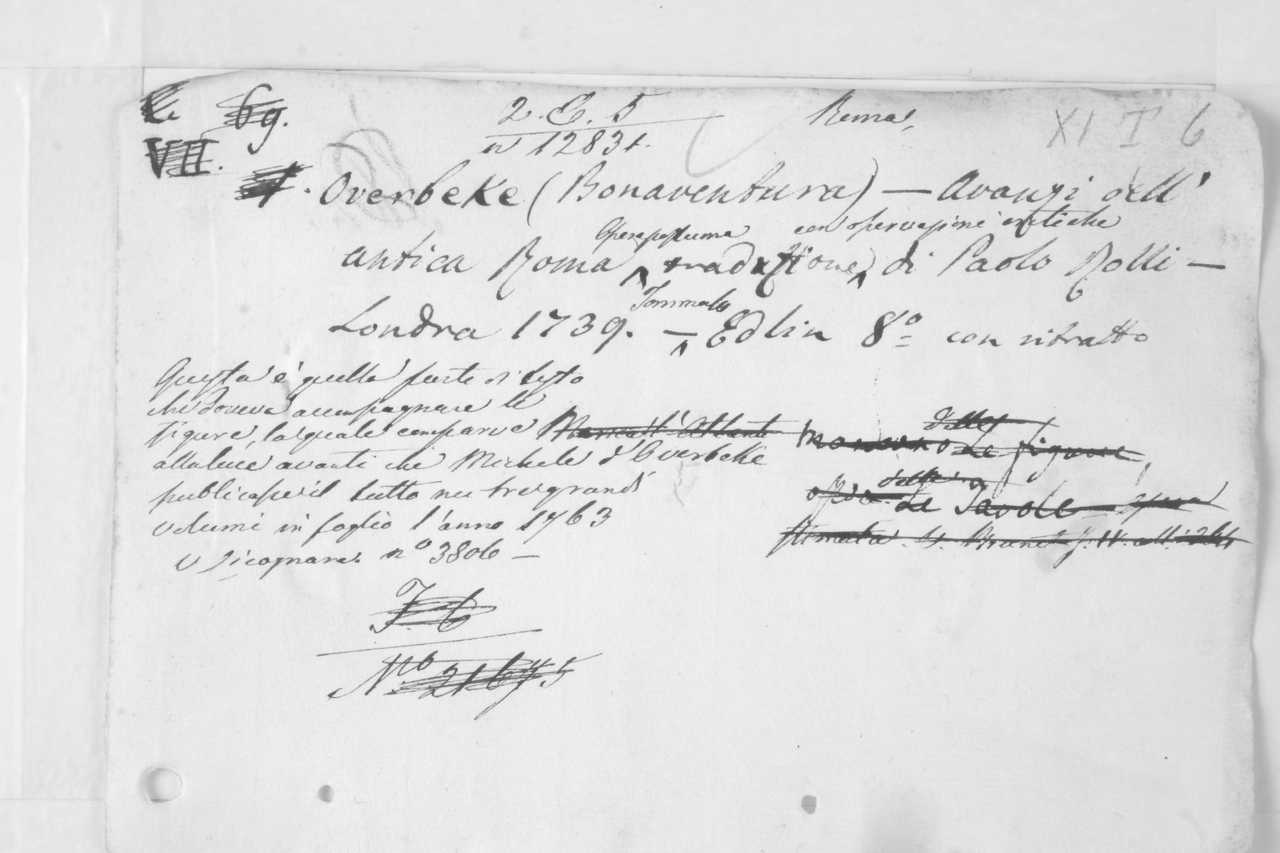 69. 2. E. 5 Roma, XI T 6
VII. n° 12831.
Overbeke (Bonaventura) — Avanzi dell'
Opera postuma con osservazioni critiche
antica Roma traduzione di Paolo Rolli —
Tommaso
Londra 1739. — Edlin 8° con ritratto
Questa è quella parte di testo
che doveva accompagnare le
figure, la quale comparve
alla luce avanti che Michele d'Overbeke
publicasse il tutto in tre grandi
volumi in foglio l'anno 1763
v. Cicognara n° 3806 —
delle
le figure
delle
le Tavole
stimata Brunet
N° 21675